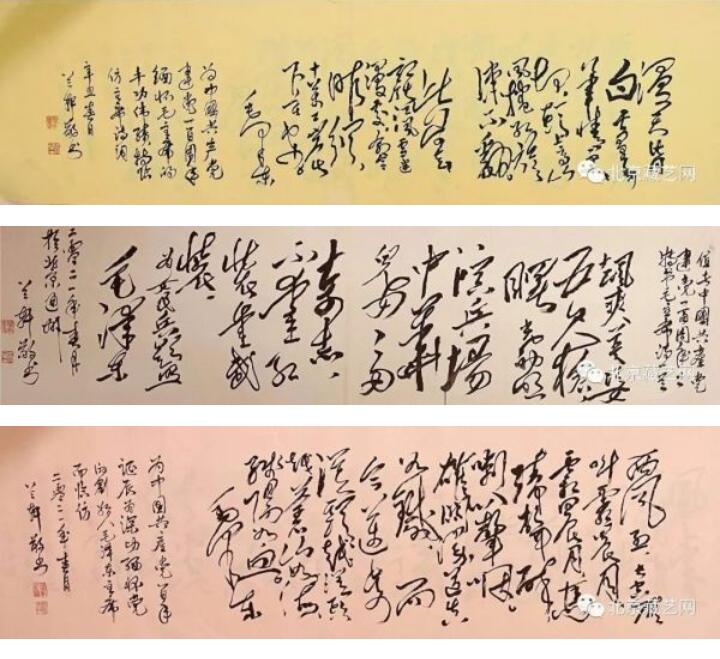 漫天皆
白雪里行
军情更迫
头上高山
风卷红旗
过大关
此行何去
赣江风雪迷
漫处命令
昨颁
十万工农
下吉安
毛泽东
为中国共产党
建党一百周年
缅怀毛主席的
丰功伟绩特临
仿主席诗词
辛丑春月
兰轩敬书
北京藏艺网
值此中国共产党
建党一百周年之
特书毛主席诗
飒爽英姿
五尺枪
曙光初照
演兵场
中华
儿女多
奇志
不爱红
装爱武
装
为女民兵题照
毛泽东
二零二一年春月
于北京通州
兰轩敬书
北京藏艺网
西风烈长空雁
叫霜晨月
霜晨月马蹄
声碎
喇叭声咽
雄关漫道真
如铁而
今迈步
从头越从头
越苍山如海
残阳如血
毛泽东
为中国共产党百年
诞辰而深切缅怀党
的创始人毛泽东主席
而临仿
二零二一年春月
兰轩敬书
北京藏艺网